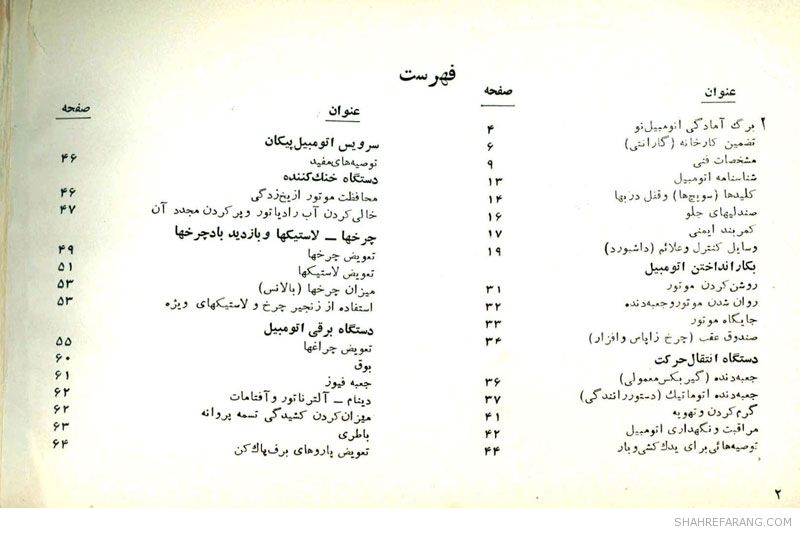 فهرست
عنوان صفحه
برگ آمادگی اتومبیل نو ۴
تضمین کارخانه (گارانتی) ۶
مشخصات فنی ۹
شناسنامه اتومبیل ۱۳
کلیدها (سویچ‌ها) وقفل دربها ۱۴
صندلیهای جلو ۱۶
کمربند ایمنی ۱۷
وسایل کنترل وعلائم (داشبورد) ۱۹
بکارانداختن اتومبیل
روشن‌کردن موتور ۳۱
روان شدن موتوروجعبه‌دنده ۳۲
جایگاه موتور ۳۳
صندوق عقب (چرخ زاپاس وافزار) ۳۴
دستگاه انتقال حرکت
جعبه‌دنده (گیربکس‌معمولی) ۳۶
جعبه‌دنده اتوماتیک (دستوررانندگی) ۳۷
گرم‌کردن وتهویه ۴۱
مراقبت ونگهداری اتومبیل ۴۲
توصیه‌هائی‌برای یدک‌کشی‌وبار ۴۴
عنوان صفحه
سرویس اتومبیل‌پیکان
توصیه‌های‌مفید ۴۶
دستگاه خنک‌کننده
محافظت موتور ازیخ‌زدگی ۴۶
خالی‌کردن آب رادیاتور وپرکردن مجدد آن ۴۷
چرخها ــ لاستیکها وبازدید بادچرخها
تعویض چرخها ۴۹
تعویض لاستیکها ۵۱
میزان چرخها (بالانس) ۵۳
استفاده از زنجیر چرخ و لاستیکهای ویژه ۵۳
دستگاه برقی اتومبیل
تعویض چراغها ۵۵
بوق ۶۰
جعبه فیوز ۶۱
دینام ــ آلترناتور وآفتامات ۶۲
میزان‌کردن کشیدگی تسمه پروانه ۶۲
باطری ۶۳
تعویض پاروهای برف‌پاک‌کن ۶۴
۲
SHAHREFARANG.COM